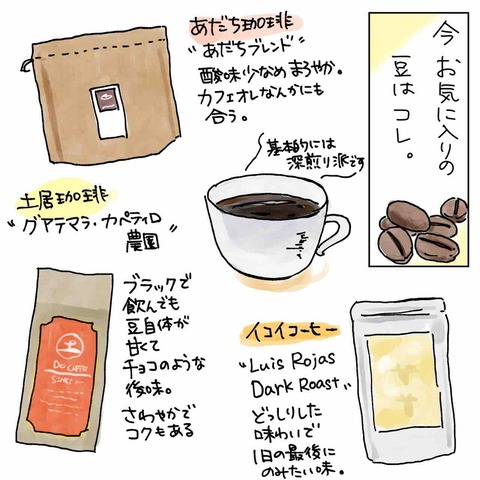 今 お気に入りの
豆は コレ。
あだち珈琲
"あだちブレンド"
酸味少なめ まろやか。
カフェオレなんかにも
合う。
基本的には
深煎り派です
土居珈琲
"グアテマラ・カペティロ
農園"
ブラックで
飲んでも
豆自体が
甘くて
チョコのような
後味。
さわやかで
コクもある
土
DOI COFFEE
SINCE
イコイコーヒー
"Luis Rojas
Dark Roast"
どっしりした
味わいで
1日の最後に
のみたい味。